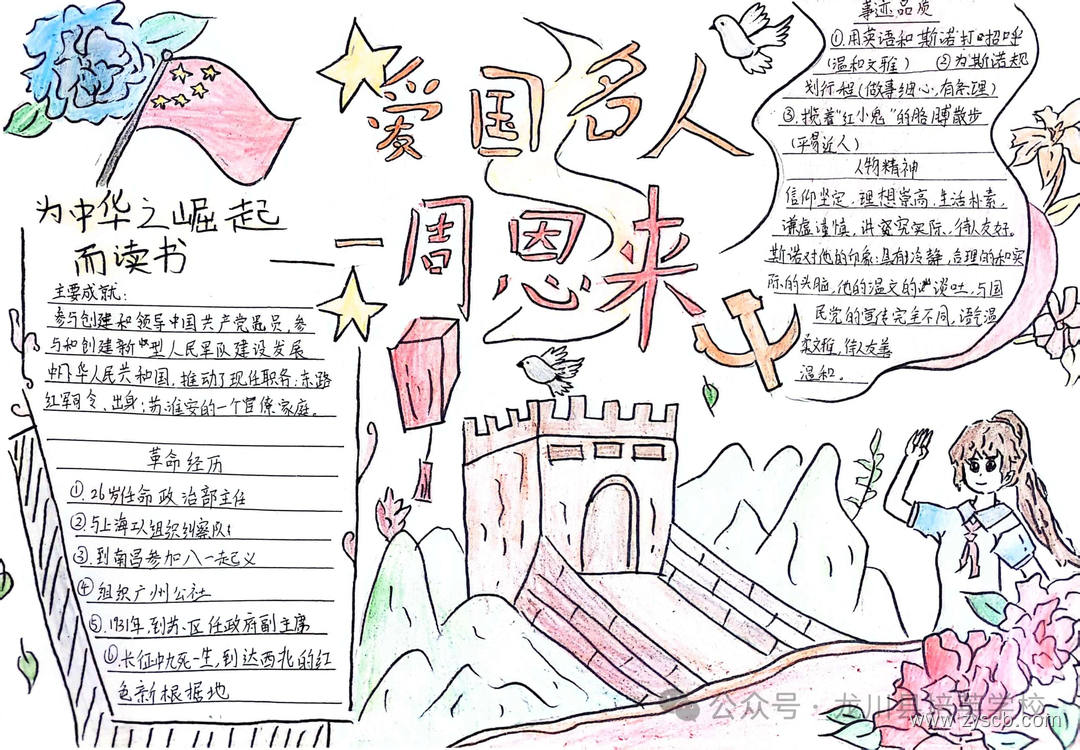 爱国名人
一周恩来
为中华之崛起
而读书
主要成就:
参与创建和领导中国共产党党员,参
与和创建新中型人民军队建设发展
中华人民共和国,推动了现任职务:东路
红军司令、出身:苏淮安的一个官僚家庭。
革命经历
①26岁任命政治部主任
②与上海工人组织纠察队
③.到南昌参加八一起义
④组织广州公社
⑤.1931年,到苏区任政府副主席
⑥.长征中九死一生,到达西北的红
色新根据地
事迹品质
①用英语和斯诺打招呼
(温和文雅) ②为斯诺规
划行程(做事细心,有条理)
③.搅着"红小鬼"的胳膊散步
(平易近人)
人物精神
信仰坚定,理想崇高,生活朴素,
谦虚谨慎,讲究实际,待人友好。
斯诺对他的印象:具有冷静,合理的和实
际的头脑,他的温文的谈吐,与国
民党的宣传完全不同,语气温
柔文雅,待人友善
温和。
公众号·龙川县培英学校
www.zyscb.com